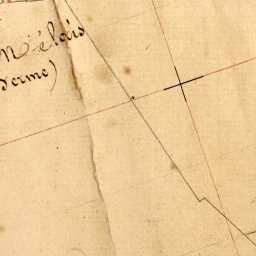 Mélais
ferme)